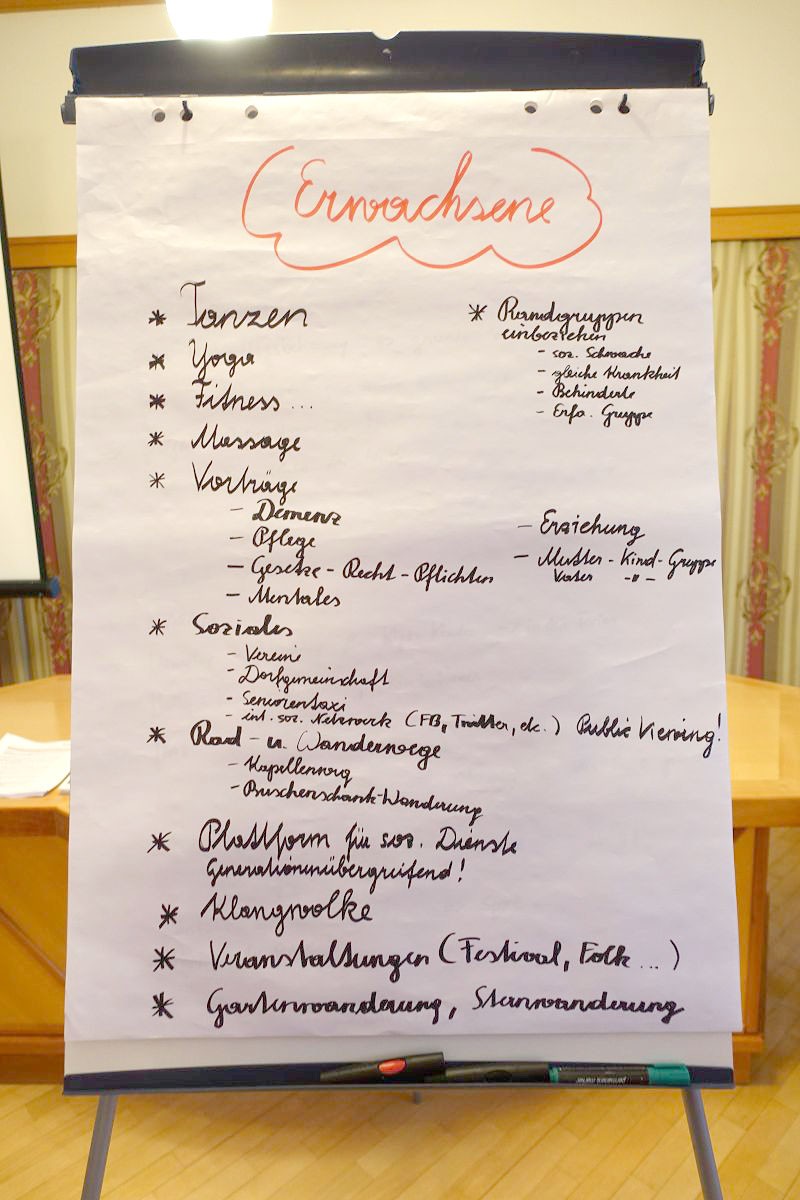 Erwachsene
* Tanzen
* Yoga
* Fitness ...
* Massage
* Vorträge
- Demenz
- Pflege
- Gesetze - Recht - Pflichten
- Mentales
* Randgruppen
einbeziehen
- soz. Schwache
- gleiche Krankheit
- Behinderte
- Erfa. Gruppe
- Erziehung
- Mutter - Kind - Gruppe
Vater - " -
* Soziales
- Vereine
- Dorfgemeinschaft
- Seniorentaxi
- int. soz. Netzwerk (FB, Twitter, etc.) Public Viewing!
* Rad - u. Wanderwege
- Kapellenweg
- Buschenschank-Wanderung
* Plattform für soz. Dienste
Generationenübergreifend!
* Klangwolke
* Veranstaltungen (Festival, Folk ...)
* Gartenwanderung, Sternwanderung
permanent marker